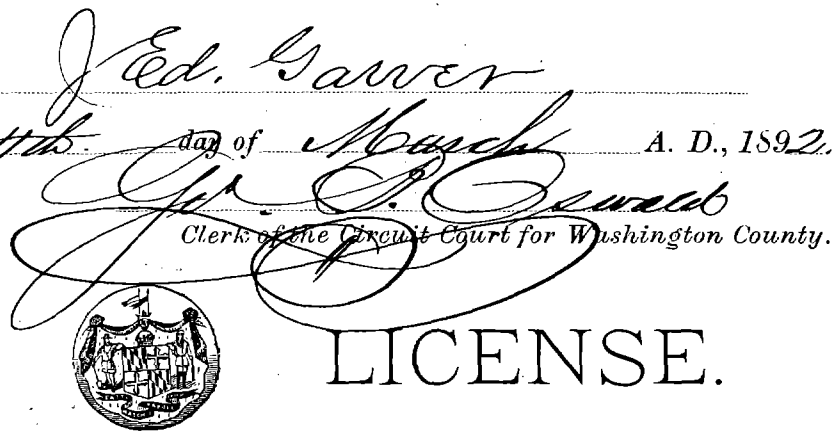 J Ed. Garver
4th. day of March A. D., 1892.
Geo. B. Oswald
Clerk of the Circuit Court for Washington County.
LICENSE.